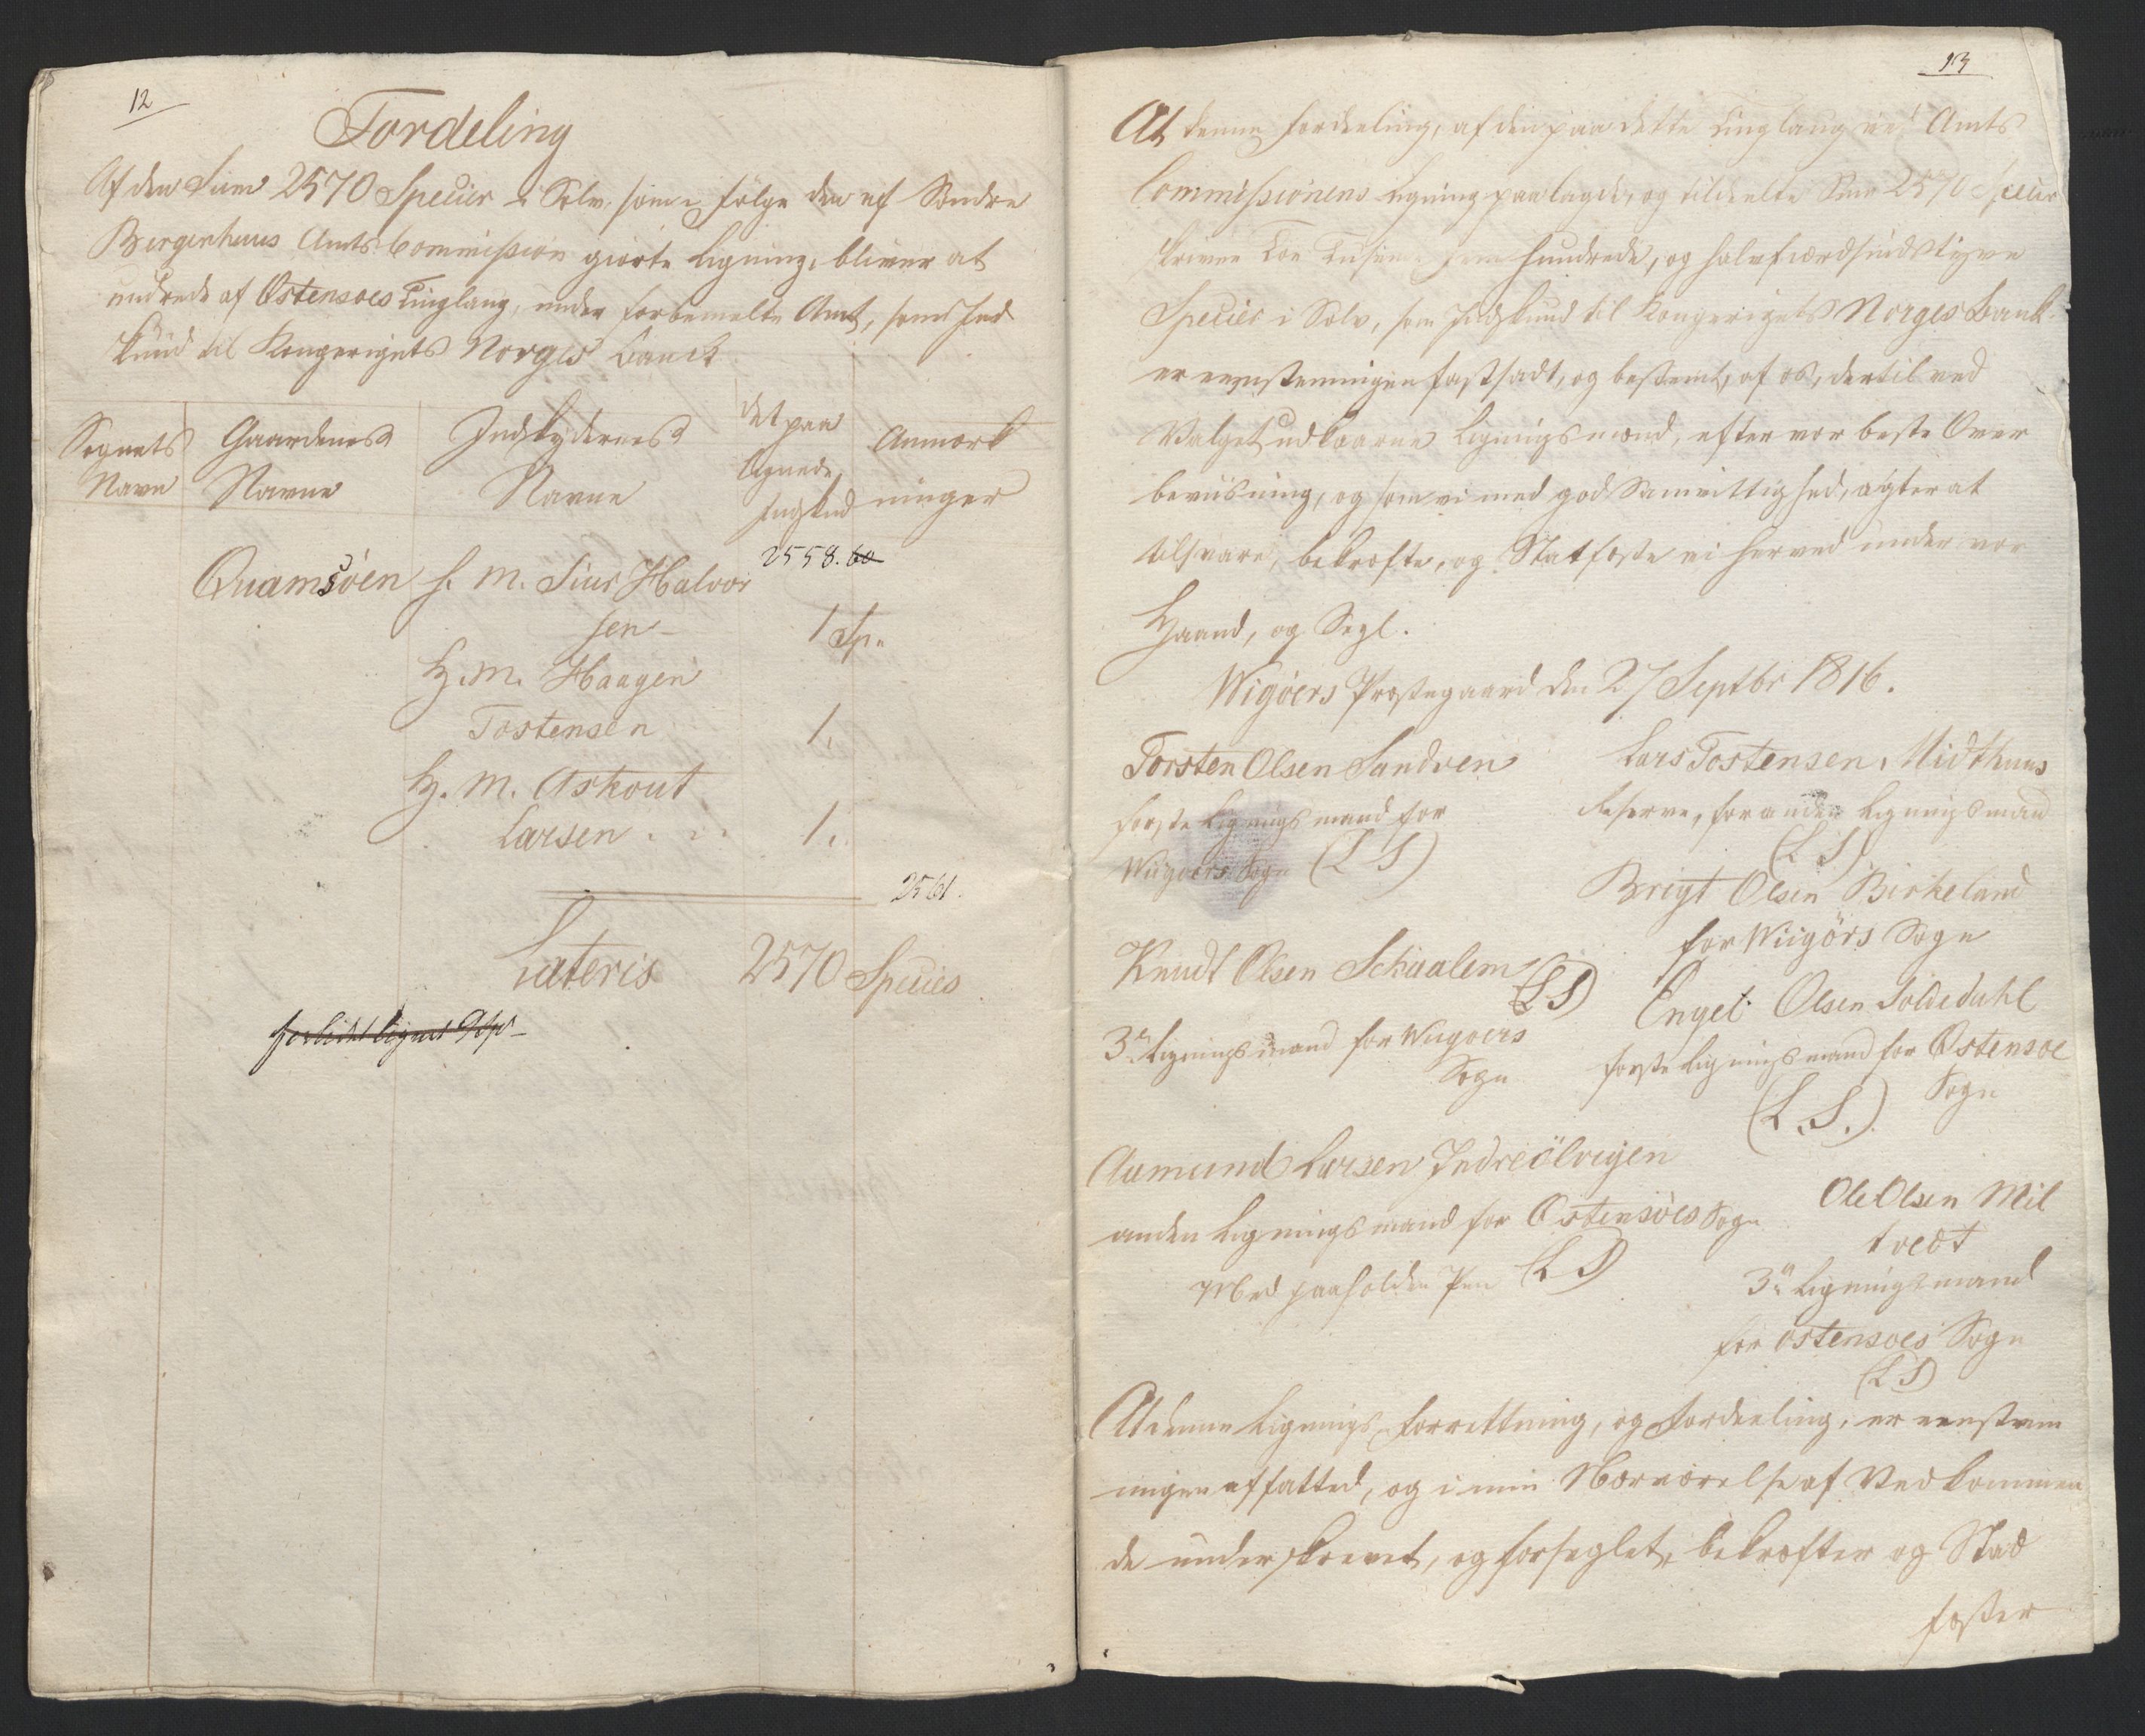 12
Fordeling
Af den Sum 2570 Species i Sølv, som i følge den af Søndre
Bergenhuus Amts Commission giorte Ligning, bliver at
udrede af Østensøes Tinglaug, under forbemelte Amt, som Ind
skud til Kongerigets Norges Banck
Sognets
Navn
Gaardenes
Navne
Indskydernes
Navne
det paa
lignede
Indskud
Anmærk
ninger
2558. 60
Quamsöen H. M. Siur Halvor
sen - 1 Sp.
H. M. Haagen
Tostensen 1.
H. M. Askout
Larsen . . . 1.
2561.
Lateris 2570 Species
13
At denne Fordeeling, af den paa dette Tinglaug ved Amts
Commissionens Ligning paalagde, og tildeelte Sum 2570 Species
skriver Toe Tusinde fem hundrede, og halvfierdsindstyve
Species i Sølv, som Indskud til Kongerigets Norges Bank
er eenstemmigen fastsadt, og bestemt, af os, dertil ved
Valget udkaarne Ligningsmænd, efter vor beste Over
beviisning, og som vi med god Samvittighed, agter at
tilsvare, bekræfte, og Statfæste vi herved under vor
Haand, og Segl.
Wigøers Præstegaard den 27 Septbr 1816.
Torsten Olsen Sandven
første Ligningsmand for
Wiigøers Sogn (L S)
Lars Tostensen Midthuus
Reserve, for anden Ligningsmand
(L S)
Brigt Olsen Birkeland
for Wiigörs Sogn
Knudt Olsen Schaalem (L S)
3de Ligningsmand for Wiigøers
Sogn
Engel Olsen Soldedahl
første Ligningsmand for Østensøe
Sogn
(L. S.)
Aamund Larsen Indreölvigen
anden Ligningsmand for Østensøes Sogn
Med paaholden Pen (L S)
Ole Olsen Mil
tvedt
3de Ligningsmand
for Østensøes Sogn
(L S)
At denne Lignings Forrettning, og Fordeeling, er eenstem
migen affatted, og i min Nærværelse af Vedkommen
de underskrevet, og forseglet, bekræfter og Stad
fæster